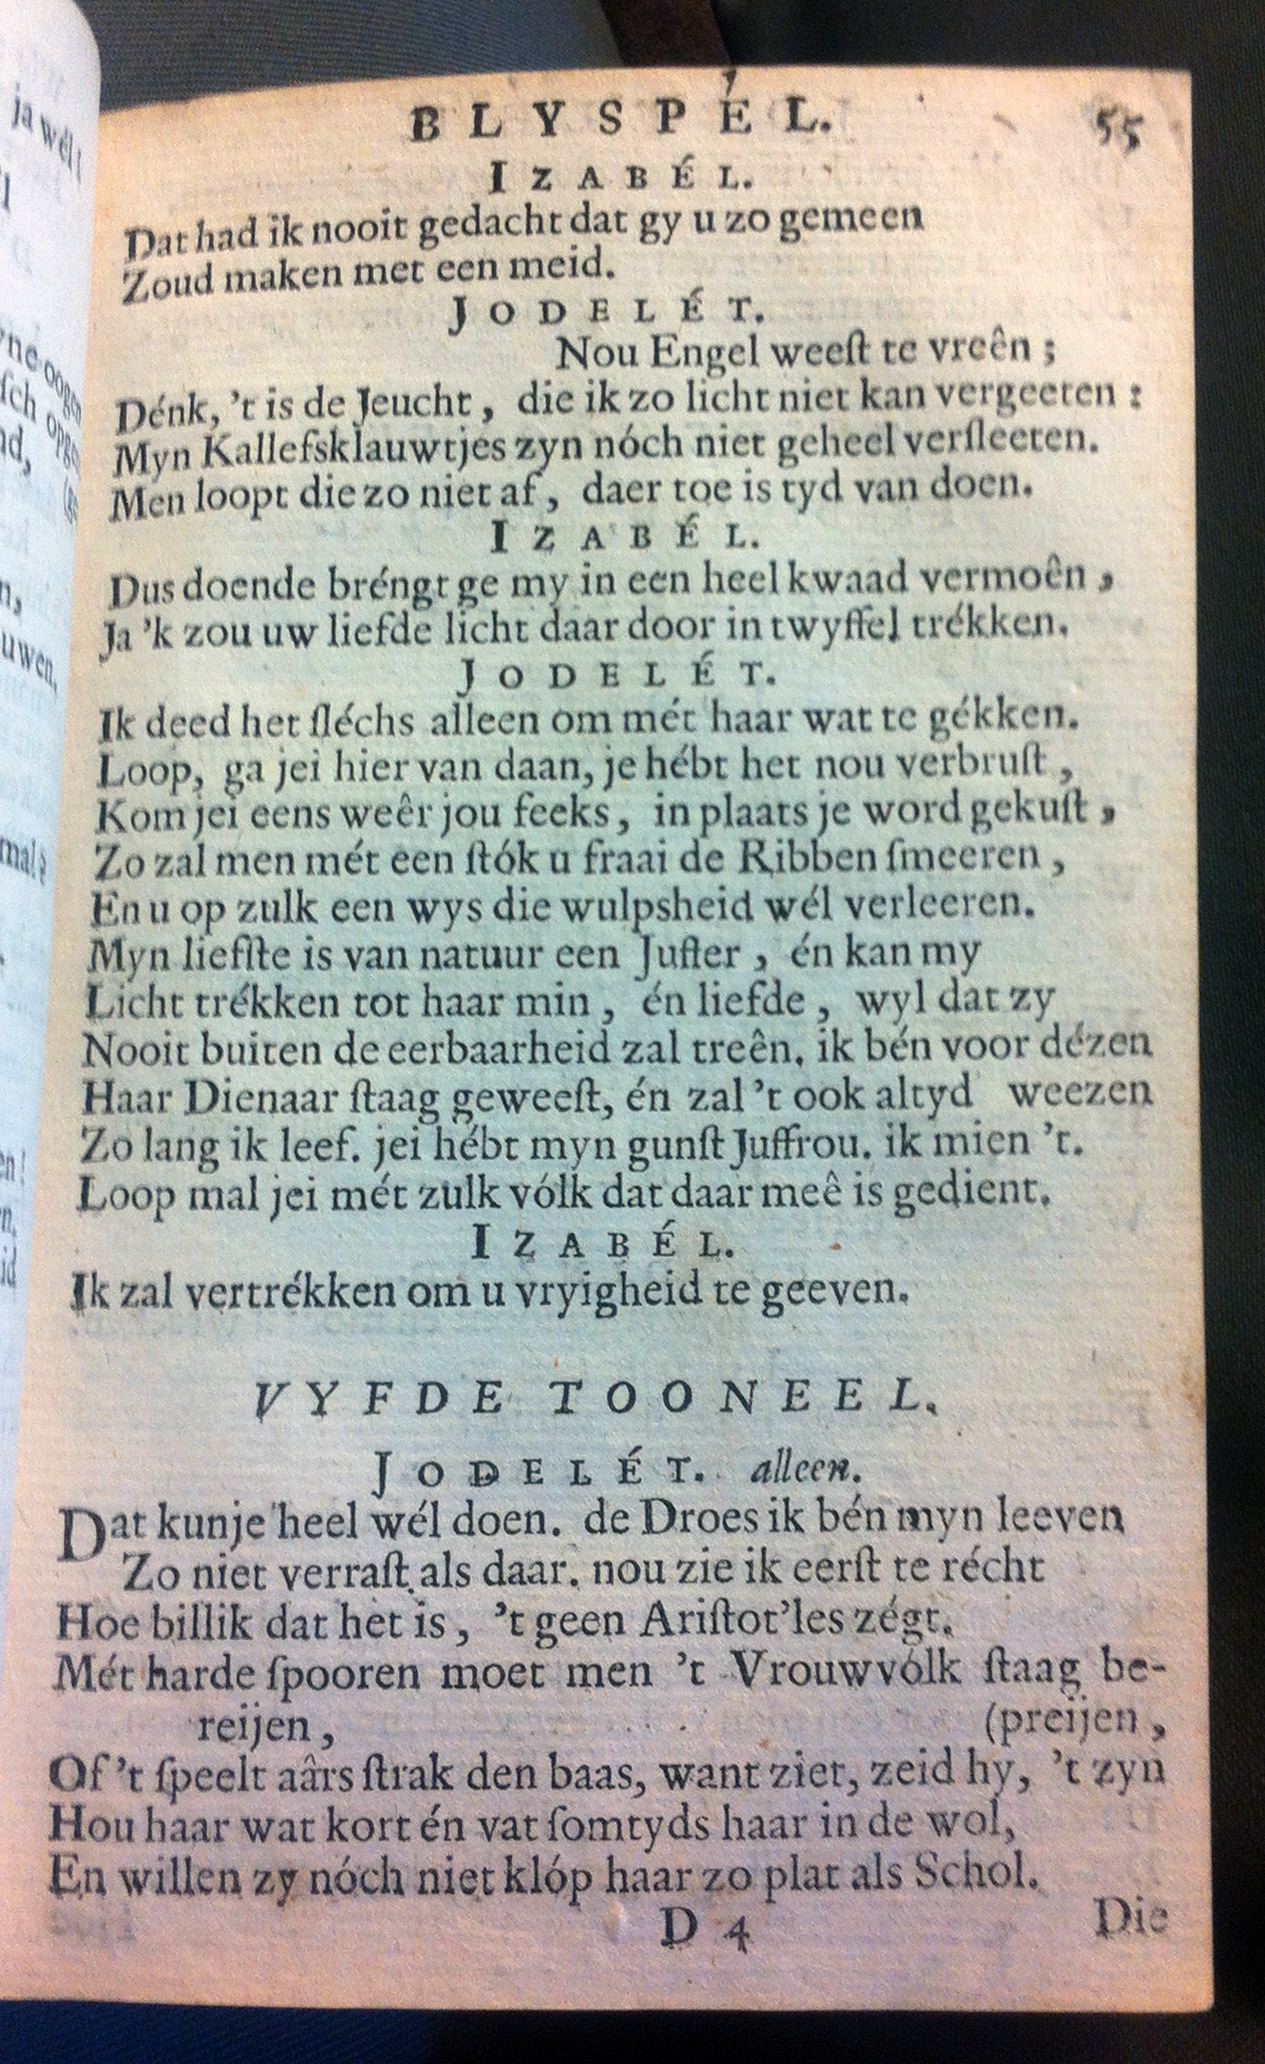 BLYSPÉL. 55
IZABÉL.
Dat had ik nooit gedacht dat gy u zo gemeen
Zoud maken met een meid.
JODELÉT.
Nou Engel weeſt te vreên ;
Dénk, 't is de Jeucht, die ik zo licht niet kan vergeeten :
Myn Kallefsklauwtjes zyn nóch niet geheel verſleeten.
Men loopt die zo niet af, daer toe is tyd van doen.
IZABÉL.
Dus doende bréngt ge my in een heel kwaad vermoên,
Ja 'k zou uw liefde licht daar door in twyffel trékken.
JODELÉT.
Ik deed het ſléchs alleen om mét haar wat te gékken.
Loop, ga jei hier van daan, je hébt het nou verbruſt,
Kom jei eens weêr jou feeks, in plaats je word gekuſt,
Zo zal men mét een ſtók u fraai de Ribben ſmeeren,
En u op zulk een wys die wulpsheid wél verleeren.
Myn liefſte is van natuur een Juffer, én kan my
Licht trékken tot haar min, én liefde, wyl dat zy
Nooit buiten de eerbaarheid zal treên, ik bén voor dézen
Haar Dienaar ſtaag geweeſt, én zal 't ook altyd weezen
Zo lang ik leef. jei hébt myn gunſt Juffrou. ik mien 't.
Loop mal jei mét zulk vólk dat daar meê is gedient.
IZABÉL.
Ik zal vertrékken om u vryigheid te geeven.
VYFDE TOONEEL.
JODELÉT. alleen.
Dat kunje heel wél doen. de Droes ik bén myn leeven
Zo niet verraſt als daar. nou zie ik eerſt te récht
Hoe billik dat het is, 't geen Ariſtot'les zégt.
Mét harde ſpooren moet men 't Vrouwvólk ſtaag be-
reijen, (preijen,
Of 't ſpeelt aârs ſtrak den baas, want ziet, zeid hy, 't zyn
Hou haar wat kort én vat ſomtyds haar in de wol,
En willen zy nóch niet klóp haar zo plat als Schol.
D 4 Die